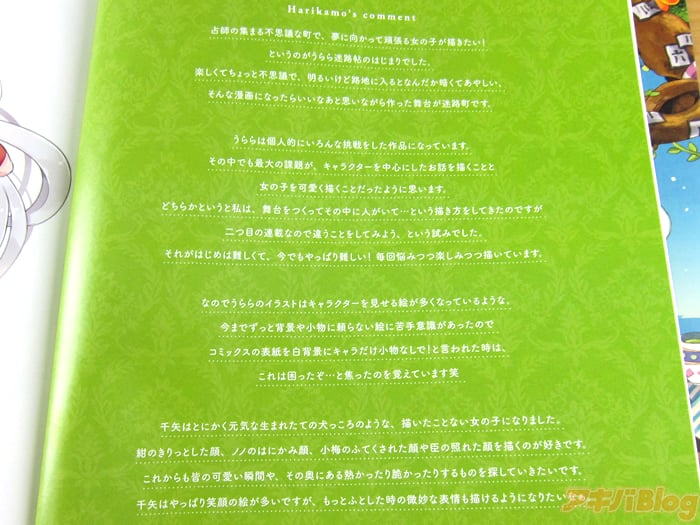 Harikamo's comment
占師の集まる不思議な町で、夢に向かって頑張る女の子が描きたい！
というのがうらら迷路帖のはじまりでした。
楽しくてちょっと不思議で、明るいけど路地に入るとなんだか暗くてあやしい、
そんな漫画になったらいいなあと思いながら作った舞台が迷路町です。
うららは個人的にいろんな挑戦をした作品になっています。
その中でも最大の課題が、キャラクターを中心にしたお話を描くことと
女の子を可愛く描くことだったように思います。
どちらかというと私は、舞台をつくってその中に人がいて…という描き方をしてきたのですが
二つ目の連載なので違うことをしてみよう、という試みでした。
それがはじめは難しくて、今でもやっぱり難しい！毎回悩みつつ楽しみつつ描いています。
なのでうららのイラストはキャラクターを見せる絵が多くなっているような。
今までずっと背景や小物に頼らない絵に苦手意識があったので
コミックスの表紙を白背景にキャラだけ小物なしで！と言われた時は、
これは困ったぞ…と焦ったのを覚えています笑
千矢はとにかく元気な生まれたての犬っころのような、描いたことない女の子になりました。
紺のきりっとした顔、ノノのはにかみ顔、小梅のふてくされた顔や臣の照れた顔を描くのが好きです。
これからも皆の可愛い瞬間や、その奥にある熱かったり脆かったりするものを探していきたいです。
千矢はやっぱり笑顔の絵が多いですが、もっとふとした時の微妙な表情も描けるようになりたい
アキバBlog